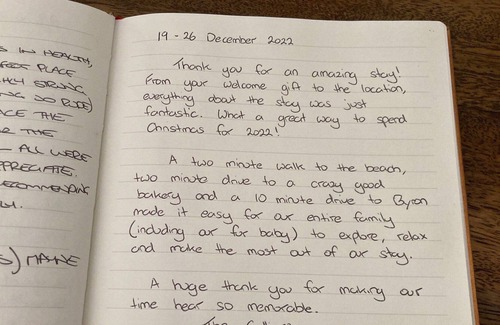 S IN HEALTH,
PLACE
STRONG
ACE THE
THE
ALL WERE
APPRECIATE.
RECOMMENDING
MAINE
19 - 26 December 2022
Thank you for an amazing stay!
From your welcome gift to the location,
everything about the stay was just
fantastic. What a great way to spend
Christmas for 2022!
A two minute walk to the beach,
two minute drive to a crazy good
bakery and a 10 minute drive to Byron
made it easy for our entire family
(including our fur baby) to explore, relax
and make the most out of our stay.
A huge thank you for making our
time hear so memorable.